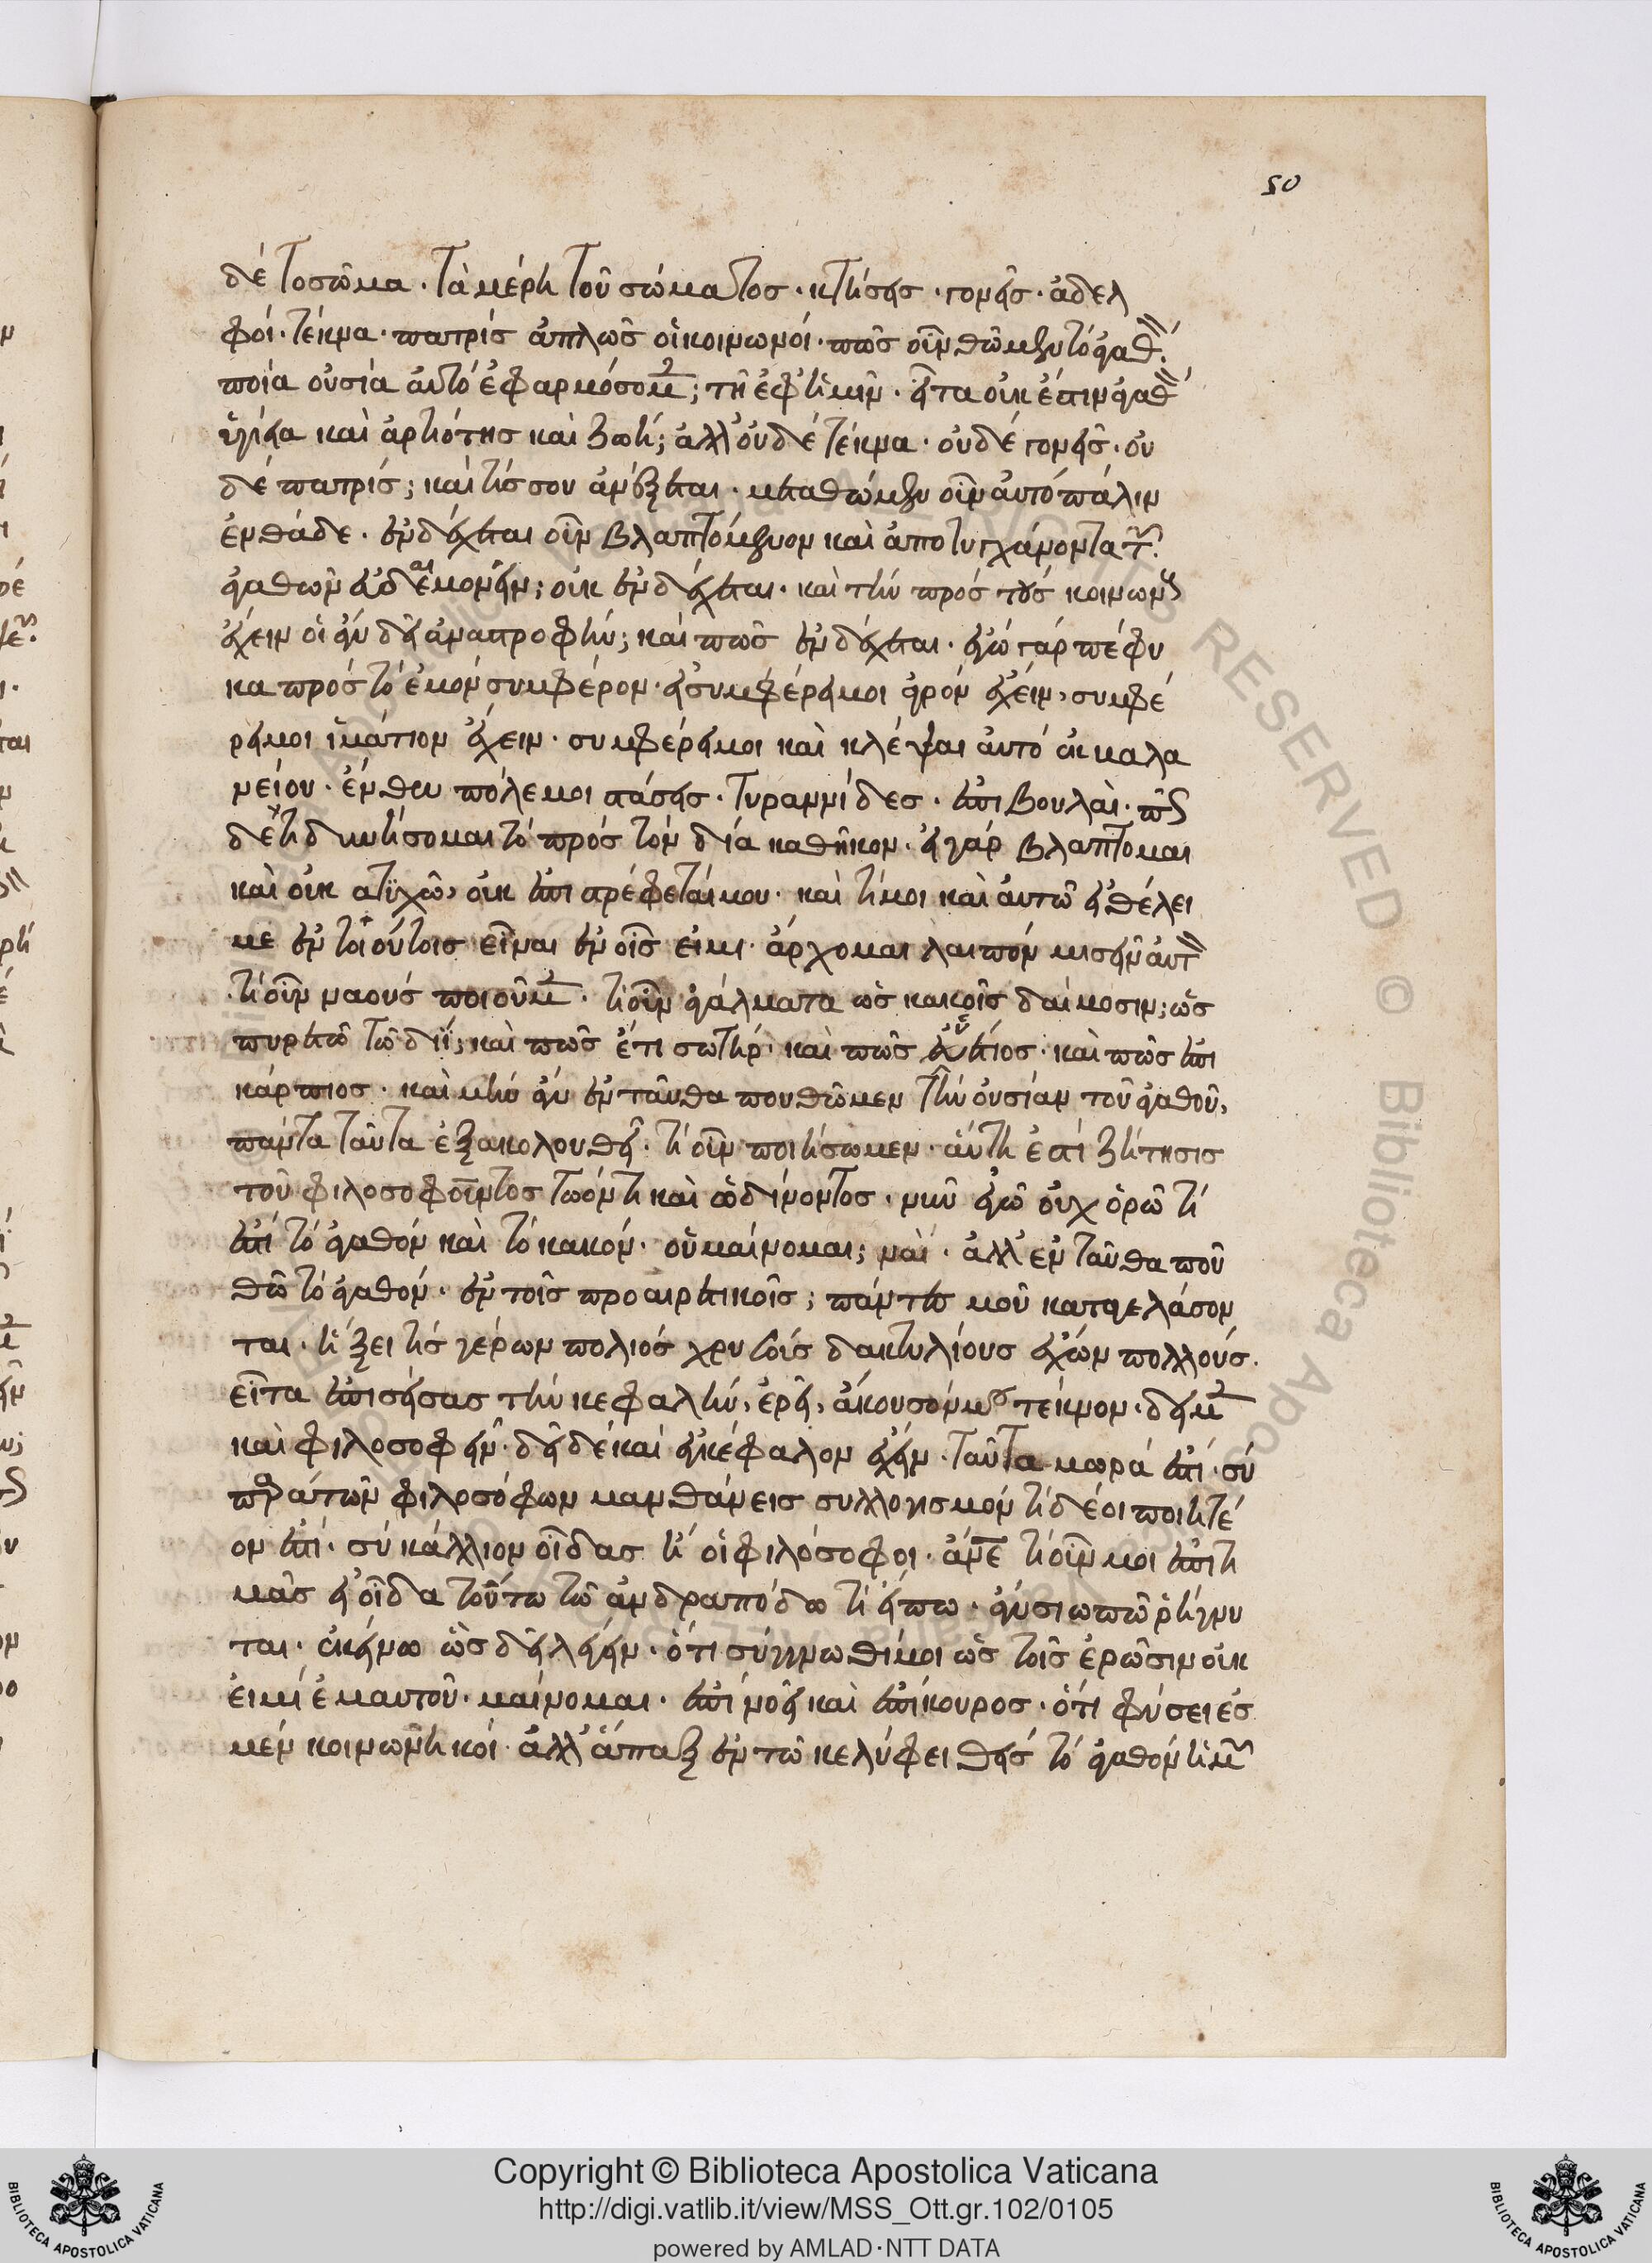 50
δὲ τὸ σῶμα· τὰ μέρη τοῦ σώματος· κτήσεις· γονεῖς· ἀδελ
φοί· τέκνα· πατρὶς ἁπλῶς οἱ κοινωνοί· ποῦ οὖν θῶμεν τὸ ἀγαθ.
ποία οὐσία αὐτὸ ἐφαρμόσομ; τῆ ἐφ ἡμῖν· εἶτα οὐκ ἔστιν ἀγαθ
ὑγίεια καὶ ἀρτιότης καὶ ζωή; ἀλλ' οὐδὲ τέκνα· οὐδὲ γονεῖς· οὐ
δὲ πατρίς; καὶ τίς σου ἀνέξεται· μεταθώμεν οὖν αὐτὸ πάλιν
ἐνθάδε· ἐνδέχεται οὖν βλαπτόμενον καὶ ἀποτυγχάνοντα τ.
ἀγαθῶν εὐδαιμονεῖν; οὐκ ἐνδέχεται· καὶ τὴν πρὸς τοὺς κοινων
ἔχειν οἵαν δεῖ ἀναστροφήν; καὶ πῶς ἐνδέχεται· ἐγὼ γὰρ πέφυ
κα πρὸς τὸ ἐμὸν συμφέρον· εἰ συμφέρει μοι ἀγρὸν ἔχειν, συμφέ
ρει μοι ἱμάτιον ἔχειν· συμφέρει μοι καὶ κλέψαι αὐτὸ ἐκ βαλα
νείου· ἔνθεν πόλεμοι στάσεις· τυραννίδες· ἐπιβουλαί· πῶς
δ' ἔτι δυνήσομαι τὸ πρὸς τὸν δία καθῆκον· εἰ γὰρ βλάπτομαι
καὶ οὐκ ατυχῶ, οὐκ ἐπιστρέφεταί μου· καὶ τί μοι καὶ αὐτῶ εἰ θέλει
με ἐν τοιούτοις εἶναι ἐν οἷς εἰμι· ἄρχομαι λοιπὸν μισεῖν αὐτ
τί οὖν ναοὺς ποιοῦμ· τί οὖν ἀγάλματα ὡς κακοῖς δαίμοσιν; ὡς
πυρετῶ τῶ διΐ; καὶ πῶς ἔτι σωτήρ· καὶ πῶς ὑέτιος· καὶ πῶς ἐπι
κάρπιος· καὶ μὴν ἂν ἐνταῦθα που θῶμεν τὴν οὐσίαν τοῦ ἀγαθοῦ,
πάντα ταῦτα ἐξακολουθεῖ· τί οὖν ποιήσωμεν· αὕτη ἐστὶ ζήτησις
τοῦ φιλοσοφοῦντος τωόντι καὶ ὠδίνοντος· νῦν ἐγὼ οὐχ ὁρῶ τί
ἐστι τὸ ἀγαθὸν καὶ τὸ κακόν· οὐ μαίνομαι; ναί· ἀλλ' ἐν ταῦθα που
θῶ τὸ ἀγαθόν· ἐν τοῖς προαιρετικοῖς; πάντες μου καταγελάσον
ται· ἥξει τὶς γέρων πολιὸς χρυσοῦς δακτυλίους ἔχων πολλούς·
εἶτα ἐπισείσας τὴν κεφαλήν, ἐρεῖ, ἄκουσόν μου τέκνον· δεῖ μ
καὶ φιλοσοφεῖν· δεῖ δὲ καὶ ἐγκέφαλον ἔχειν· ταῦτα μωρά ἐστι· σὺ
παρὰ τῶν φιλοσόφων μανθάνεις συλλογισμόν τί δέ σοι ποιητέ
ον ἐστι· σὺ κάλλιον οἶδας ἢ οἱ φιλόσοφοι· ἄνε τί οὖν μοι ἐπιτι
μᾶς εἰ οἶδα τούτω τῶ ἀνδραπόδω τί εἴπω· ἂν σιωπῶ ῥήγνυ
ται· ἐκείνω ὡς δεῖ λέγειν· ὅτι σύγγνωθί μοι ὡς τοῖς ἐρῶσιν οὐκ
εἰμὶ ἐμαυτοῦ· μαίνομαι· ἐπινοεῖ καὶ ἐπίκουρος· ὅτι φύσει ἐσ
μὲν κοινωνικοί ἀλλ' ἅπαξ ἐν τῶ κελύφει θεὶς τὸ ἀγαθὸν ἡμ
Copyright © Biblioteca Apostolica Vaticana
http://digi.vatlib.it/view/MSS_Ott.gr.102/0105
powered by AMLAD·NTT DATA
BIBLIOTECA APOSTOLICA VATICANA
BIBLIOTECA APOSTOLICA VATICANA